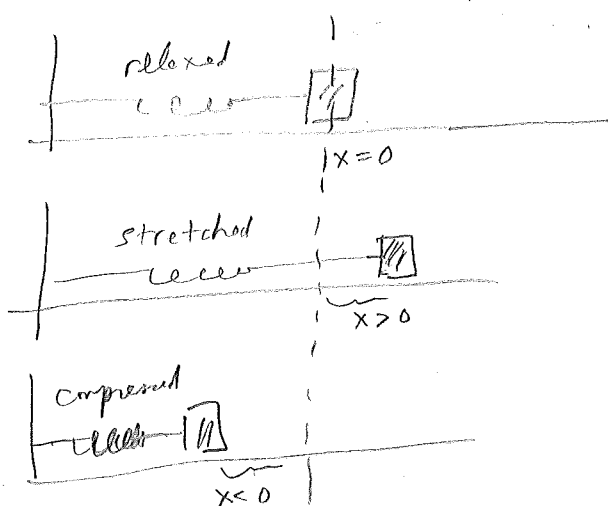 relaxed
x=0
stretched
x>0
compressed
x<0